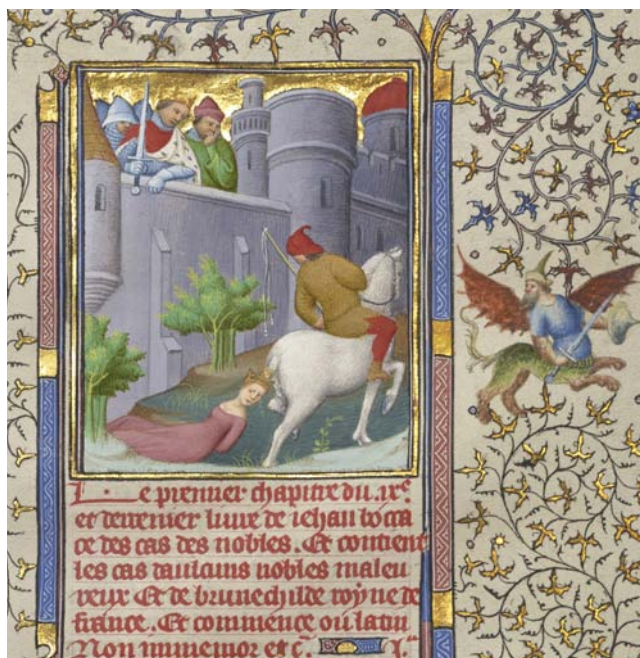 Le premier chapitre du .ixe.
et derrenier liure de iehan bocca
ce des cas des nobles. Et contient
les cas daulcuns nobles maleu
reux Et de brunechilde royne de
france. Et commence ou latin
Non inmemor etc.